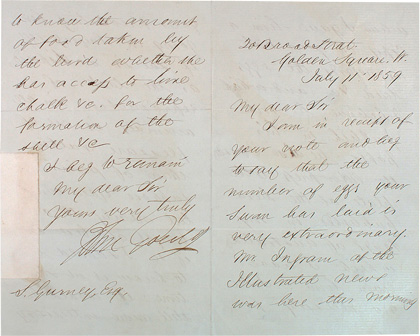 20 Broad Street
Golden Square. W.
July 11th 1859
My dear Sir
I am in receipt of
your note and beg
to say that the
number of eggs your
Swan has laid is
very extraordinary.
Mr Ingram of the
Illustrated news
was here this morning
to know the amount
of food taken by
the bird whether she
has access to lime
chalk &c. for the
formation of the
shell &c
I beg to remain
My dear Sir
yours very truly
John Gould
S. Gurney, Esq.